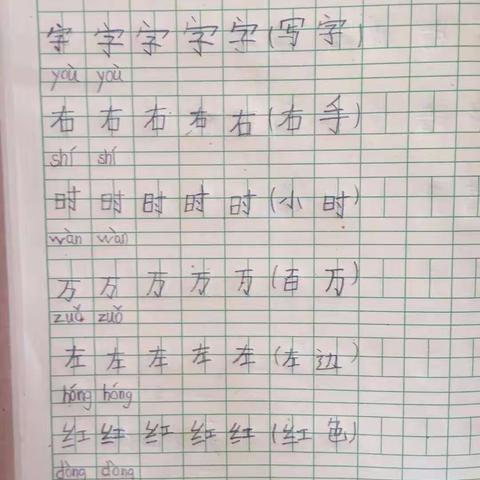 字 字 字 字 字 (写 字)
yòu yòu
右 右 右 右 右 (右 手)
shí shí
时 时 时 时 时 (小 时)
wàn wàn
万 万 万 万 万 (百 万)
zuǒ zuǒ
左 左 左 左 左 (左 边)
hóng hóng
红 红 红 红 红 (红 色)
dòng dòng